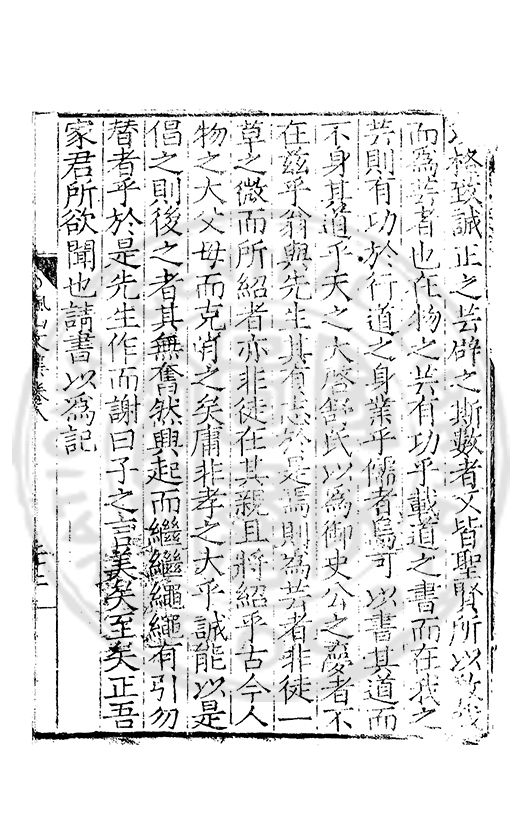 格致誠正之芸辟之斯數者又皆聖賢所以
而為芸者也在物之芸有功乎載道之書而在我之
芸則有功於行道之身業乎儒者烏可以書其道而
不身其道乎天之大啓鄒氏以為御史公之憂者不
在茲乎翁與先生其有志於是焉則為芳者非徒一
草之微而所紹者亦非徒在其親且將紹乎古今人
物之大父母而克肖之矣庸非孝之大乎誠能以是
倡之則後之者其無奮然興起而繼繼繩繩有引勿
替者乎於是先生作而謝曰子之言美矣至矣正吾
家君所欲聞也請書以為記
山文集卷八